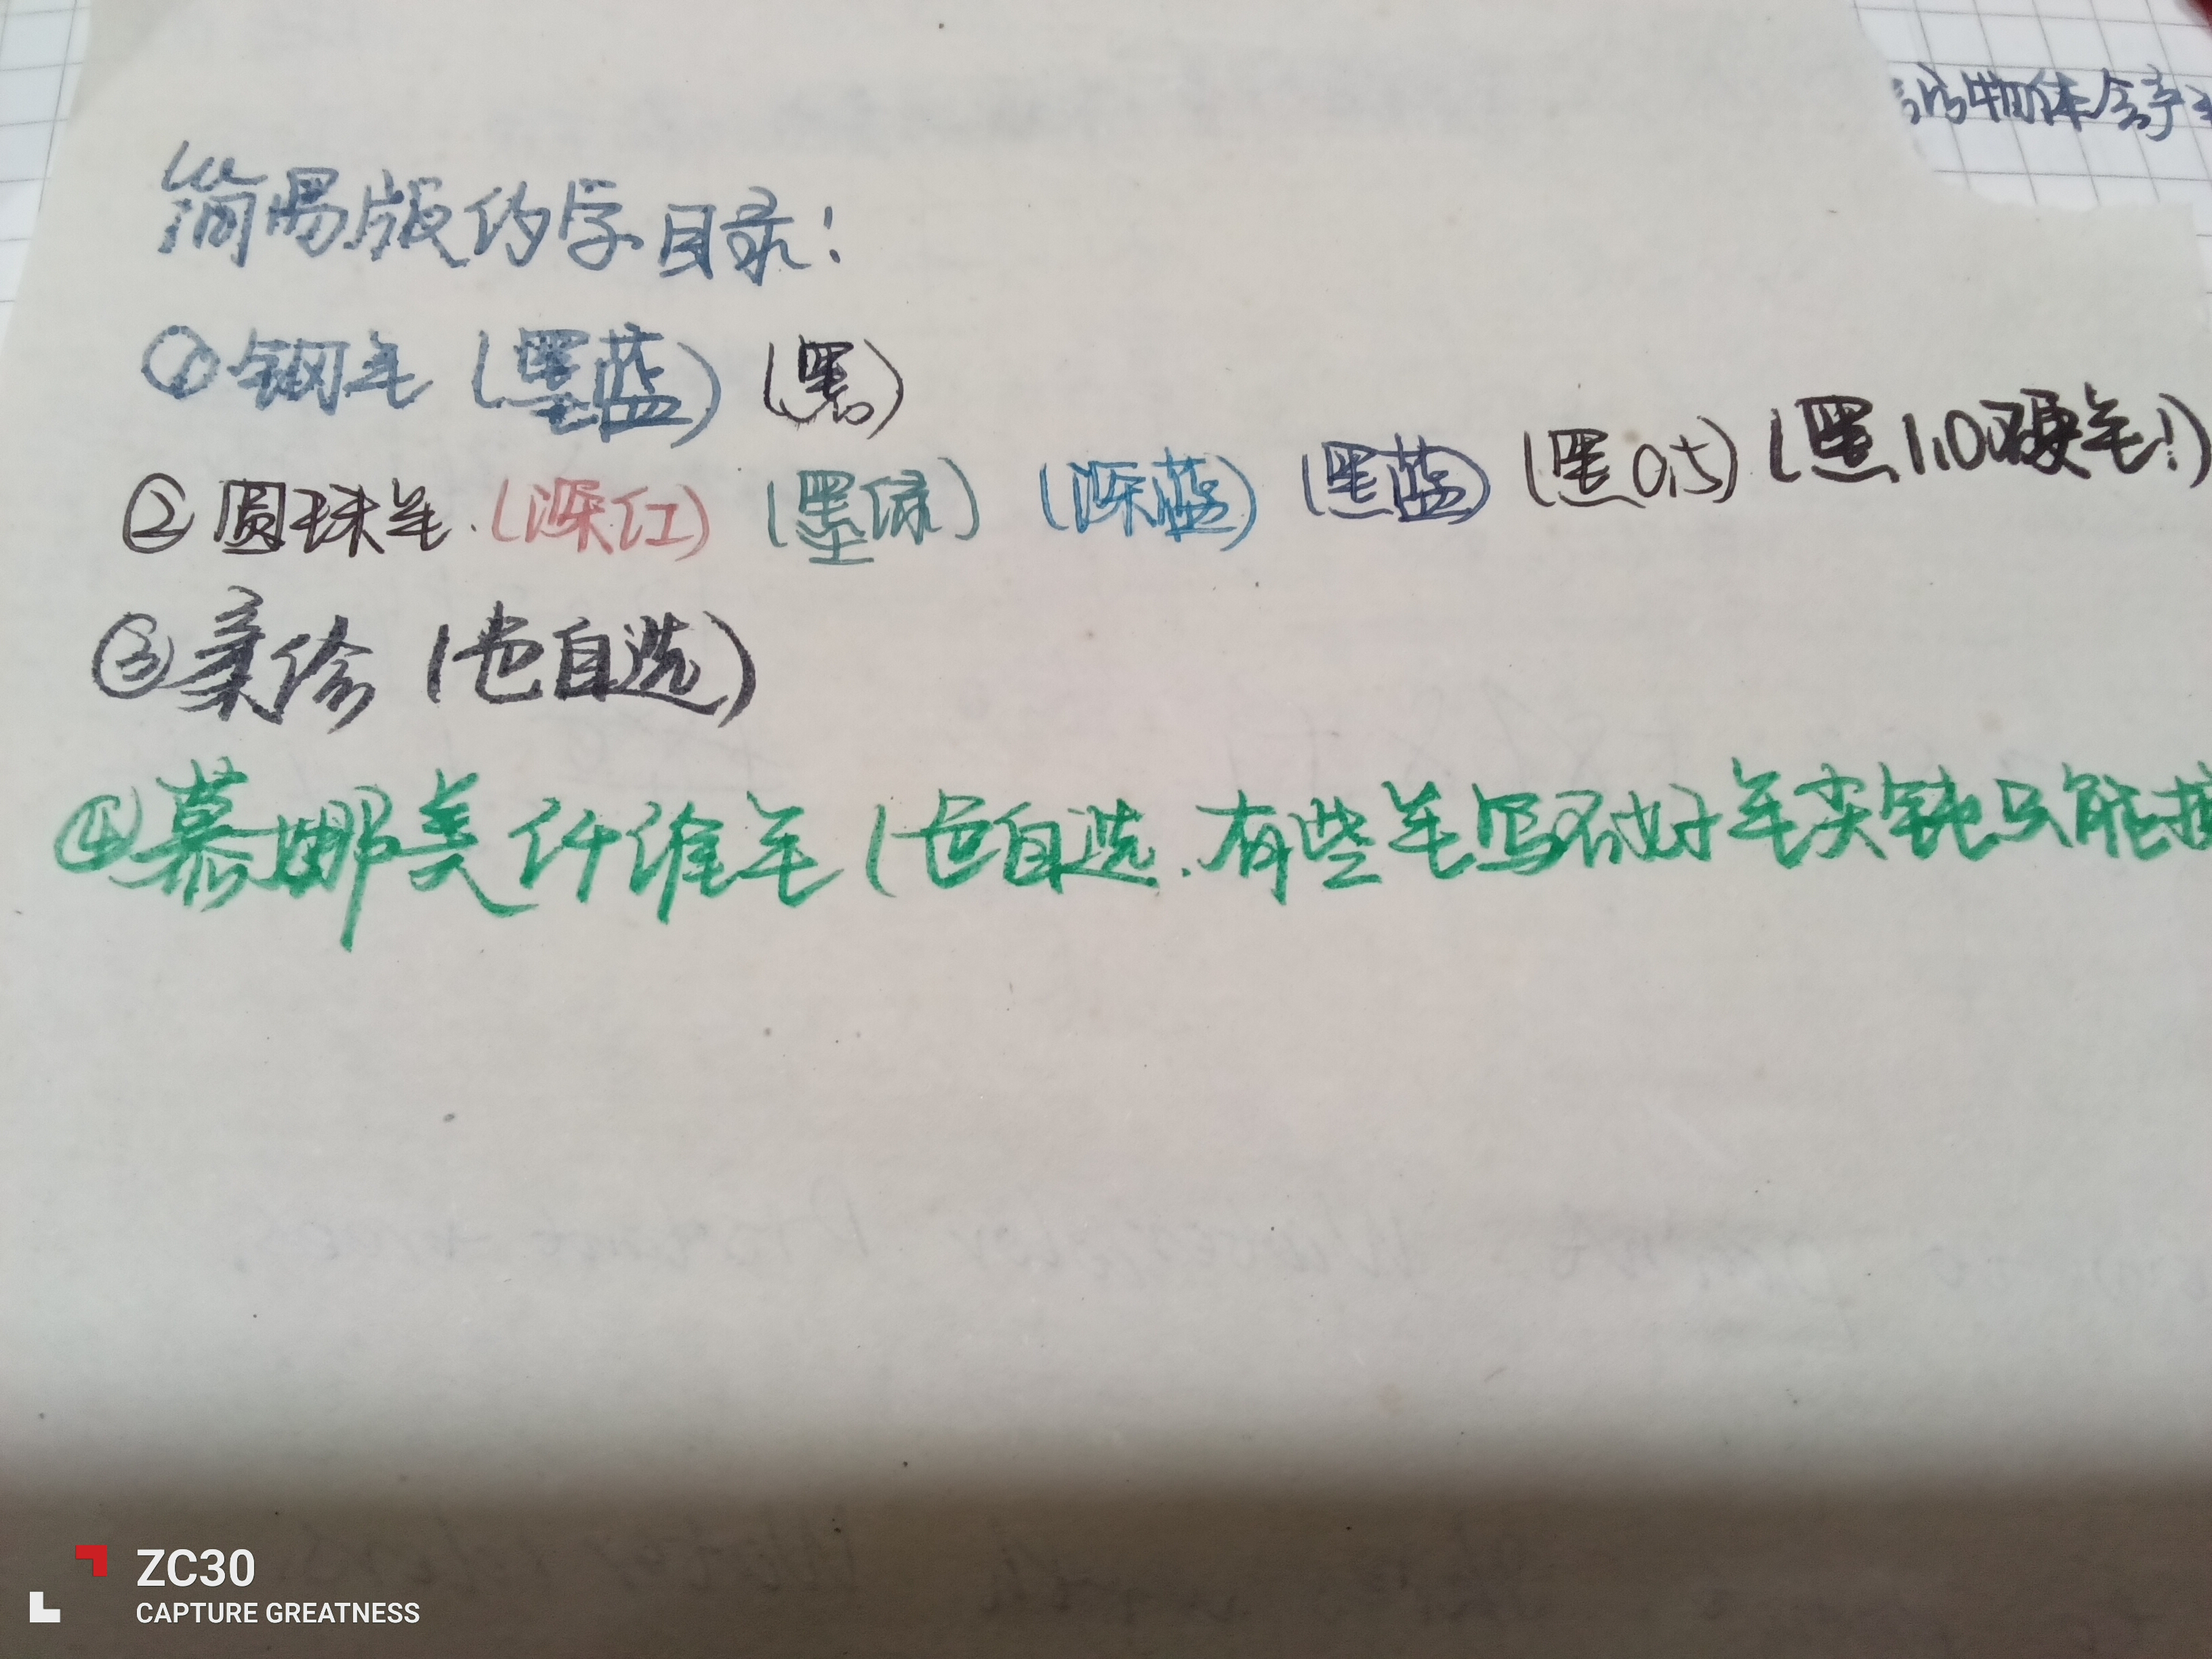 的物体会
简易版的字目录：
①钢笔（墨蓝）（黑）
②圆珠笔（深红）（墨绿）（深蓝）（黑蓝）（黑0.5）（黑1.0硬笔！）
③亲珍（色自选）
④慕娜美纤维笔（色自选.有些笔写不好笔尖钝只能
ZC30
CAPTURE GREATNESS